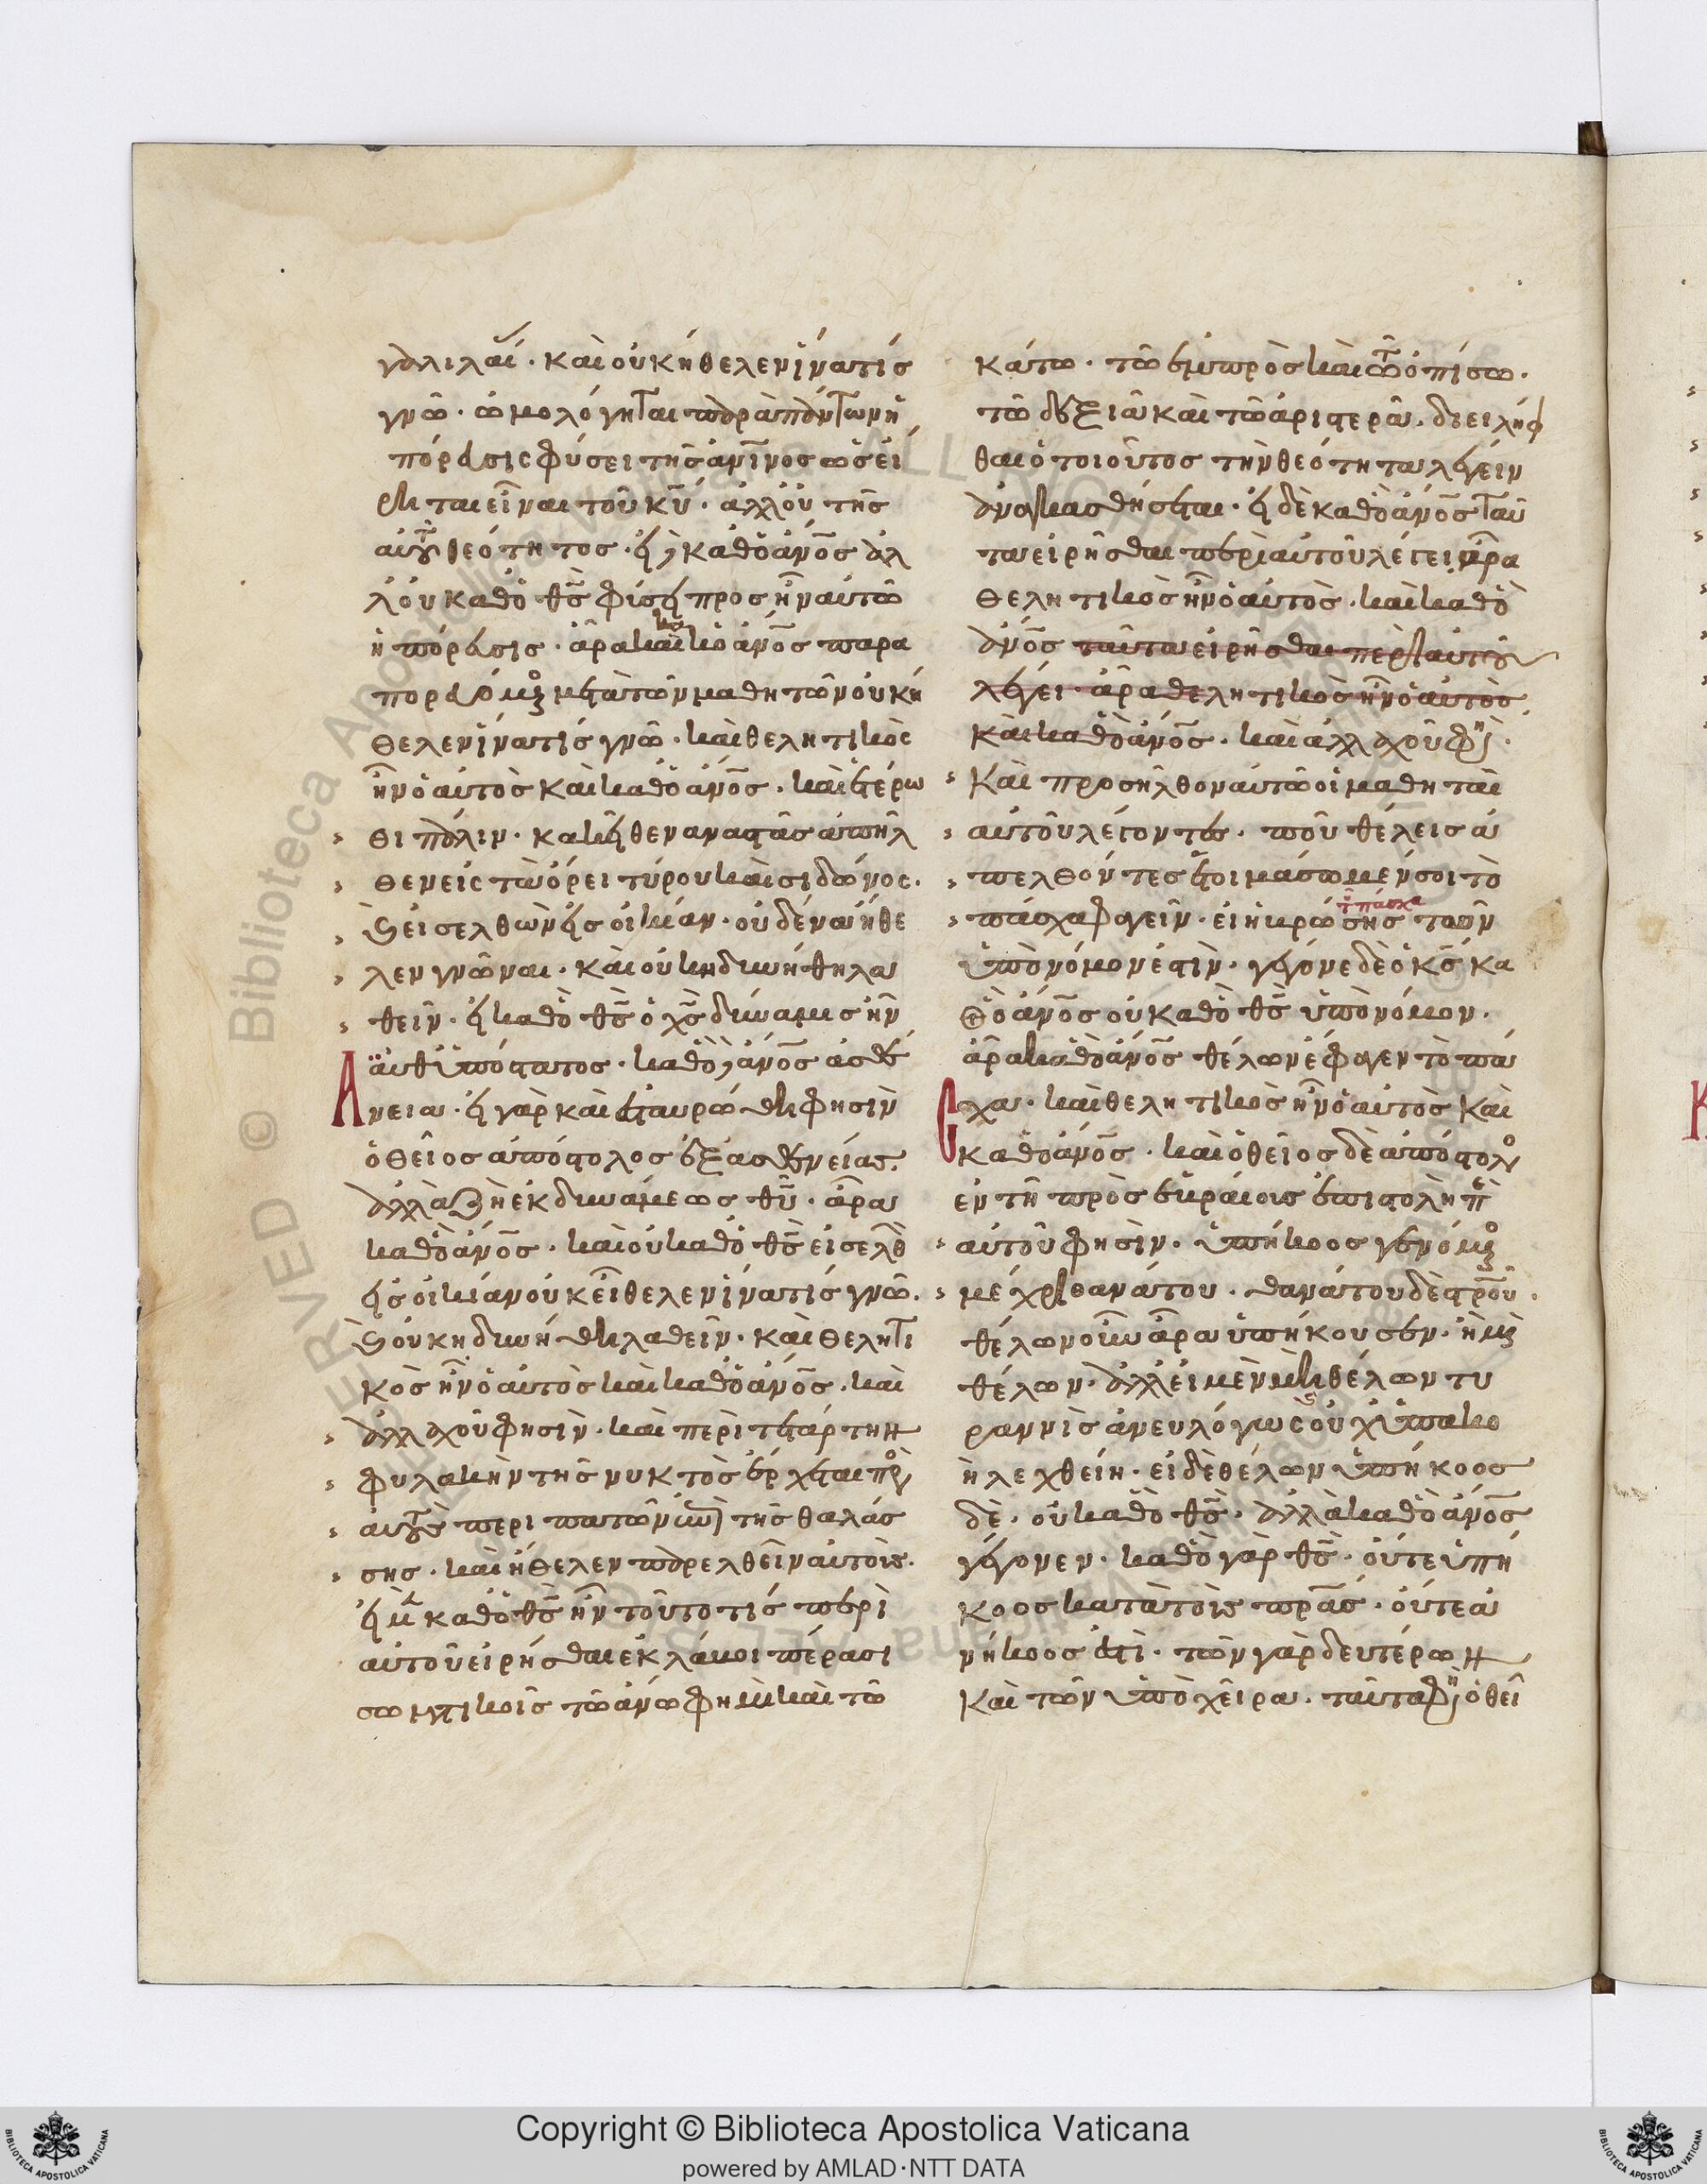 γαλιλαί · καὶ οὐκ ήθελεν ἵνα τίσ
γνῶ · ὡμολόγηται παρὰ πάντων ἡ
πόρευσις φύσει τῆσ ἀνίνοσ ὡσ εἰ
ρηται εἶναι τοῦ κυ · ἀλλ' οὐ τῆσ
αὐτοῦ θεότητοσ · εἰ καθὸ ἄνοσ ἀλ
λ' οὐ καθὸ θσ φύσει προσῆν αὐτῶ
ἡ πόρευσισ · ἄρα καὶ καθὸ ἄνοσ παρα
πορευόμενοσ μετὰ τῶν μαθητῶν οὐκ ή
θελεν ἵνα τίσ γνῶ · καὶ θελητικὸσ
ἦν ὁ αὐτὸσ καὶ καθὸ ἄνοσ · καὶ ἑτέρω
θι πάλιν · κακεῖθεν αναστὰσ ἀπῆλ
θεν εἰσ τὰ ὅρει τύρου καὶ σιδῶνοσ ·
καὶ εἰσελθὼν εἰσ οἰκίαν · οὐδένα ήθε
λεν γνῶναι · καὶ οὐκ ηδυνήθη λα
θεῖν · εἰ καθὸ θσ ὁ χσ δύναμισ ἦν
αὐθϋπόστατοσ · καθὸ ἄνοσ ἀσθέ
νεια · εἰ γὰρ καὶ ἐσταυρώθη φησὶν
ὁ θεῖοσ ἀπόστολοσ ἐξ ἀσθενείασ ·
ἀλλὰ ζῆ ἐκ δυνάμεωσ θυ · ἄρα
καθὸ ἄνοσ · καὶ οὐ καθὸ θσ εἰσελθὼ
εἰσ οἰκίαν οὐκ είθελεν ἵνα τίσ γνῶ ·
καὶ οὐκ ηδυνήθη λαθεῖν · καὶ θελητι
κὸσ ἦν ὁ αὐτὸσ καὶ καθὸ ἄνοσ · καὶ
ἀλλαχοῦ φησὶν · καὶ περὶ τετάρτην
φυλακὴν τῆσ νυκτὸσ έρχεται πρὸσ
αὐτοὺσ περιπατῶν ἐπὶ τῆσ θαλάσ
σησ · καὶ ήθελεν παρελθεῖν αὐτοῖσ ·
εἰ μὲν καθὸ θσ ἦν τοῦτο τίσ περὶ
αὐτοῦ εἰρῆσθαι ἐκλάμοι πέρασι
σωματικοῖσ τῶ άνω φημὶ καὶ τῶ
κάτω · τῶ ἔμπροσ καὶ τῶ ὀπίσω ·
τῶ δεξιῶ καὶ τῶ ἀριστερῶ · διειλήφ
θαι ὁ τοιοῦτοσ τὴν θεότητα λέγειν
ἀναγκασθήσεται · εἰ δὲ καθὸ ἄνοσ ταῦ
τα εἰρῆσθαι περὶ αὐτοῦ λέγει · ἄρα
θελητικὸσ ἦν ὁ αὐτὸσ · καὶ καθὸ
ἄνοσ ταῦτα εἰρῆσθαι περὶ αὐτοῦ
λέγει · ἄρα θελητικὸσ ἦν ὁ αὐτὸσ
καὶ καθὸ ἄνοσ · καὶ ἀλλαχοῦ φησὶ ·
καὶ προσῆλθον αὐτῶ οἱ μαθηταὶ
αὐτοῦ λέγοντεσ · ποῦ θέλεισ ἀ
πελθόντεσ ἑτοιμάσωμέν σοι τὸ
πάσχα φαγεῖν · εἰ ἡ βρῶσησ τοῦ πάσχα τῶν
ὑπὸ νόμον ἐστὶν · γέγονε δὲ ὁ κσ κα
θὸ ἄνοσ οὐ καθὸ θσ ὑπὸ νόμον ·
ἄρα καθὸ ἄνοσ θέλων έφαγεν τὸ πά
σχα · καὶ θελητικὸσ ἦν ὁ αὐτὸσ καὶ
καθὸ ἄνοσ · καὶ ὁ θεῖοσ δὲ ἀπόστολοσ
ἐν τῆ πρὸσ ἑβραίουσ ἐπιστολὴ περὶ
αὐτοῦ φησὶν · ὑπήκοοσ γενόμενοσ
μέχρι θανάτου · θανάτου δὲ στροῦ ·
θέλων οὖν ἄρα ὑπήκουσεν · ἢ μὴ
θέλων · ἀλλ' εἰ μὲν μὴ θέλων τυ
ραννὶσ ἀνευλόγωσ οὐχ ὑπακο
ὴ λεχθείη · εἰ δὲ θέλων ὑπήκοοσ
δὲ · οὐ καθὸ θσ · ἀλλὰ καθὸ ἄνοσ
γέγονεν · καθὸ γὰρ θσ · οὔτε ὑπή
κοοσ κατὰ τοὺσ πρασ · οὔτε ἀ
νήκοοσ ἐστὶ · τῶν γὰρ δευτέρων
καὶ τῶν ὑπὸ χεῖρα · ταῦτα φησὶ ὁ θεῖ
Copyright © Biblioteca Apostolica Vaticana
powered by AMLAD·NTT DATA